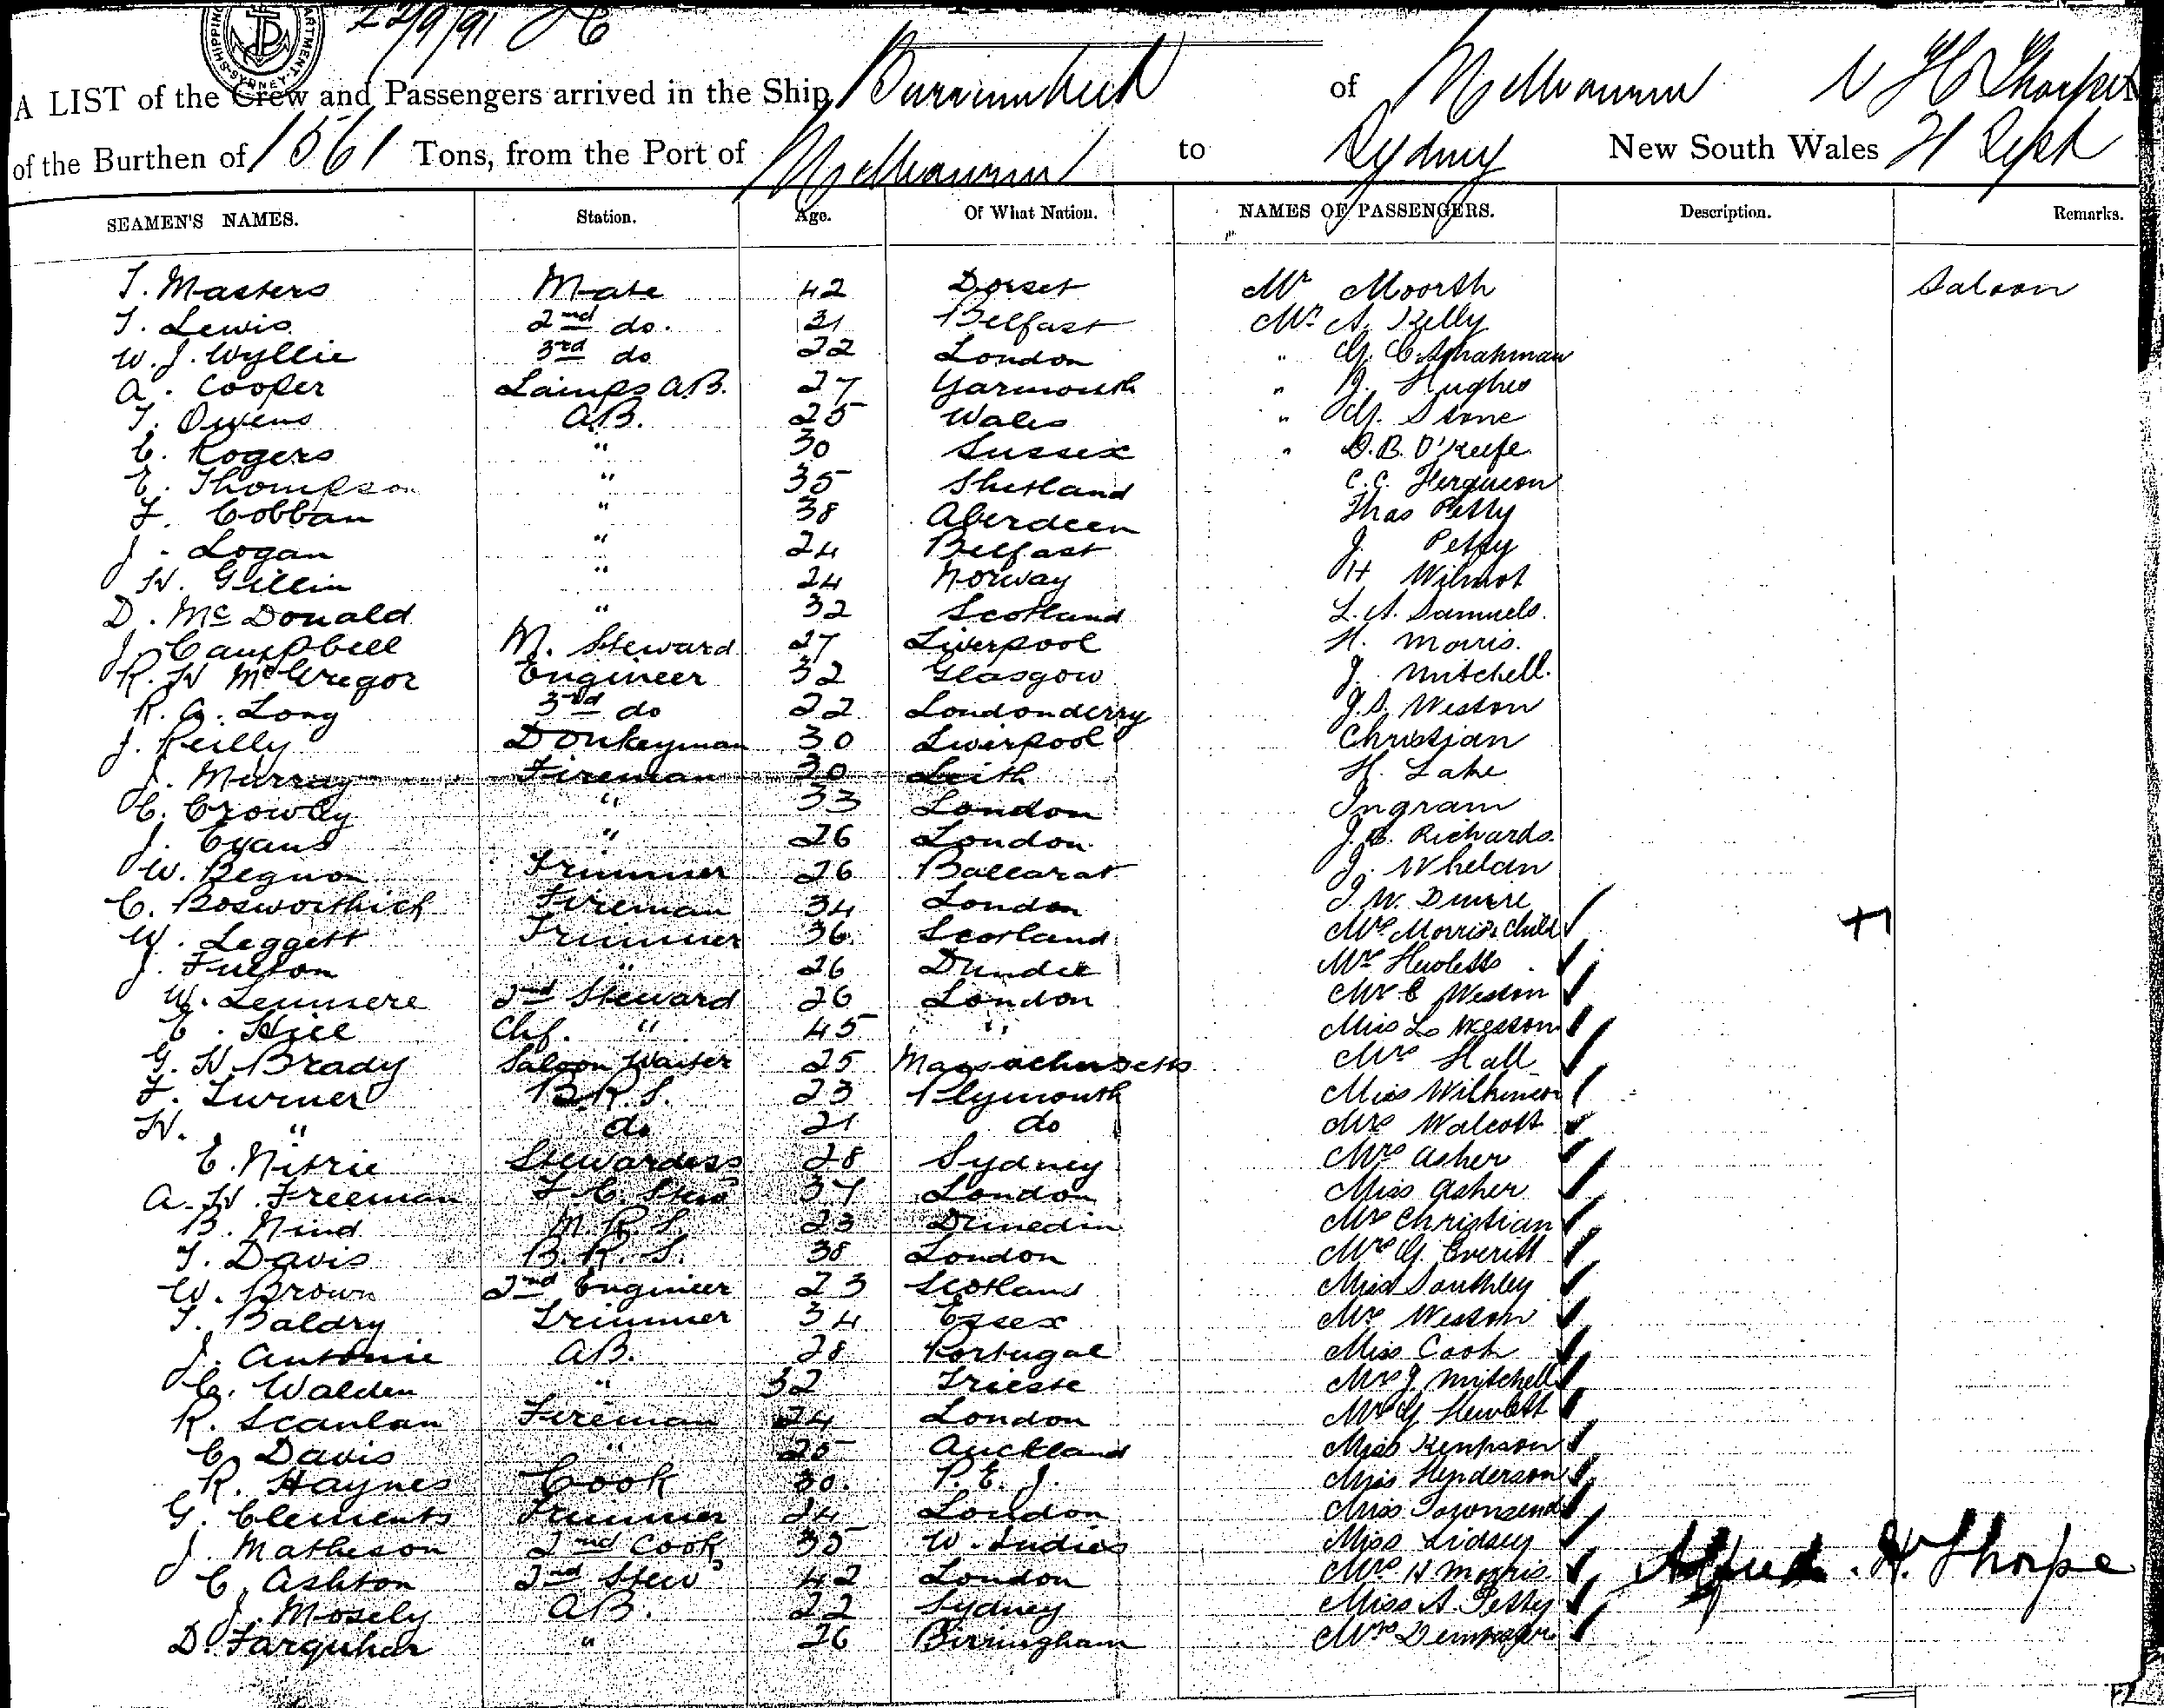 22/9/91
SHIPPING DEPARTMENT SYDNEY
A LIST of the Crew and Passengers arrived in the Ship Burrumbeet of Melbourne
of the Burthen of 1561 Tons, from the Port of Melbourne to Sydney New South Wales 21 Sept
SEAMEN'S NAMES. Station. Age. Of What Nation. NAMES OF PASSENGERS. Description. Remarks.
T. Masters Mate 42 Dorset Mr Moorth Saloon
T. Lewis 2nd do. 31 Belfast Mr A. Kelly
W. J. Wyllie 3rd do 22 London "
A. Cooper Lamps A.B. 27 Yarmouth " J. Hughes
T. Owens A.B. 25 Wales " G. Stone
C. Rogers " 30 Sussex " D. B. O'Keefe
E. Thompson " 35 Shetland C. C. Ferguson
F. Cobban " 38 Aberdeen Thos Petty
J. Logan " 24 Belfast J. Petty
H. Gillin " 24 Norway H Wilmot
D. McDonald " 32 Scotland L. A. Samuels.
J. Campbell M. Steward 27 Liverpool H. Morris.
R. H McGregor Engineer 32 Glasgow J. Mitchell.
R. A. Long 3rd do 22 Londonderry J. S. Weston
J. Reilly Donkeyman 30 Liverpool Christian
J. Murray Fireman 30 Leith H. Lake
C. Crowly " 33 London Ingram
J. Evans " 26 London J. E. Richards.
W. Regnon Trimmer 26 Ballarat J. Whelan
C. Bosworthick Fireman 34 London J. W.
W. Leggett Trimmer 36 Scotland Mrs Morris & Child
J. Fulton " 26 Dundee Mrs Hewletts
W. Lenmere 2nd Steward 26 London Mrs E Weston
E. Hill Chf. " 45 " Miss L. Weston
G. H Brady Saloon Waiter 25 Massachusetts Mrs Hall
F. Turner B.R.S. 23 Plymouth Miss Wilkinson
H. " do 21 do Mrs Walcott
E. Nitrie Stewardess 28 Sydney Mrs Asher
A. H. Freeman F. C. Stew 37 London Miss Asher
B. Nind M.R.S. 23 Dunedin Mrs Christian
T. Davis B.R.S. 38 London Mrs G. Everitt
W. Brown 2nd Engineer 23 Scotland Miss Southley
T. Baldry Trimmer 34 Essex Mrs Weston
J. Antonie A.B. 28 Portugal Miss Cook
C. Walden " 32 Trieste Mrs J. Mitchell
R. Scanlan Fireman 24 London Mrs G Hewlett
C. Davis " 25 Auckland Miss Kempson
R. Haynes Cook 30. P. E. J. Miss Henderson
G. Clements Trimmer 24 London Miss Townsend
J. Matheson 2nd Cook 35 W. Indies Miss Lidsey
C. Ashton 2nd Stew 42 London Mrs H Morris Alfred. H. Thorpe
J. Mosely A.B. 22 Sydney Miss A. Petty
D. Farquhar " 26 Birmingham Mrs